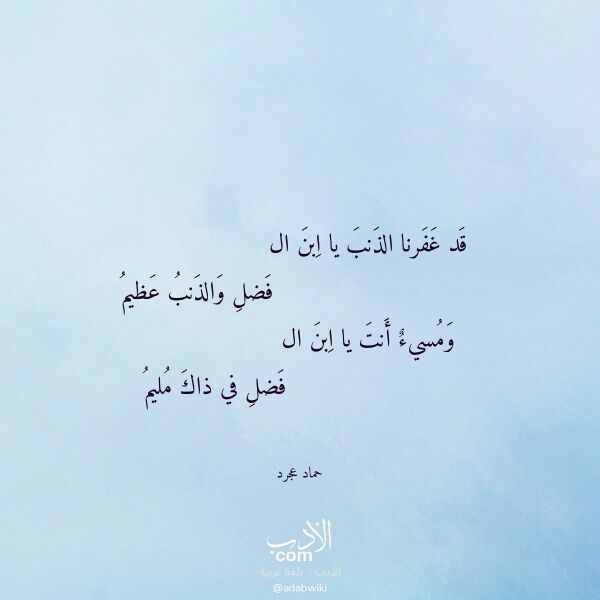 قَد غَفَرنا الذَنبَ يا اِبنَ ال
فَضلِ وَالذَنبُ عَظيمُ
وَمُسيءٌ أَنتَ يا اِبنَ ال
فَضلِ في ذاكَ مُليمُ
حماد عجرد
الأدب
com
الأدب .. بلغة عربية
@adabwiki